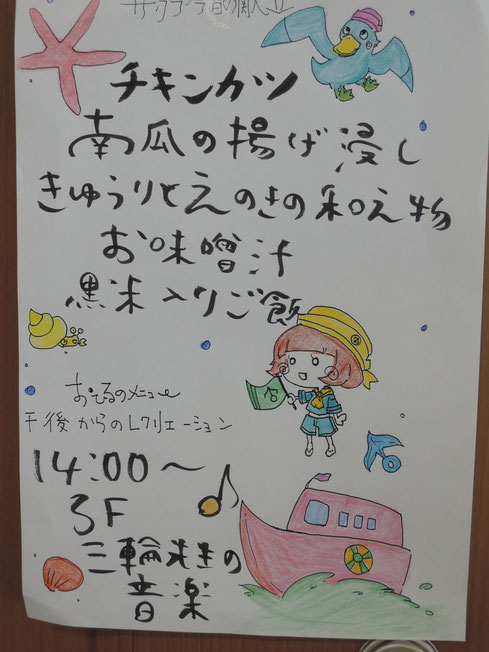 チキンカツ
南瓜の揚げ浸し
きゅうりとえのきの和え物
お味噌汁
黒米入りご飯
おひるのメニュー
午後からのレクリエーション
14:00～
3F
三輪先生の
音楽